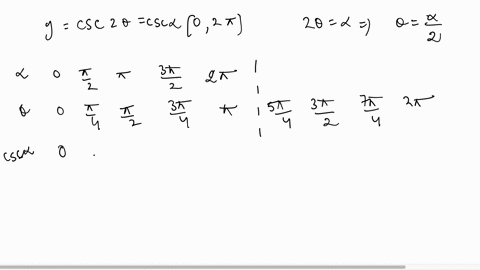 y = csc 2θ = csc α [0, 2π] 2θ = α ⇒ θ = α/2
α 0 π/2 π 3π/2 2π
θ 0 π/4 π/2 3π/4 π 5π/4 3π/2 7π/4 2π
csc α 0